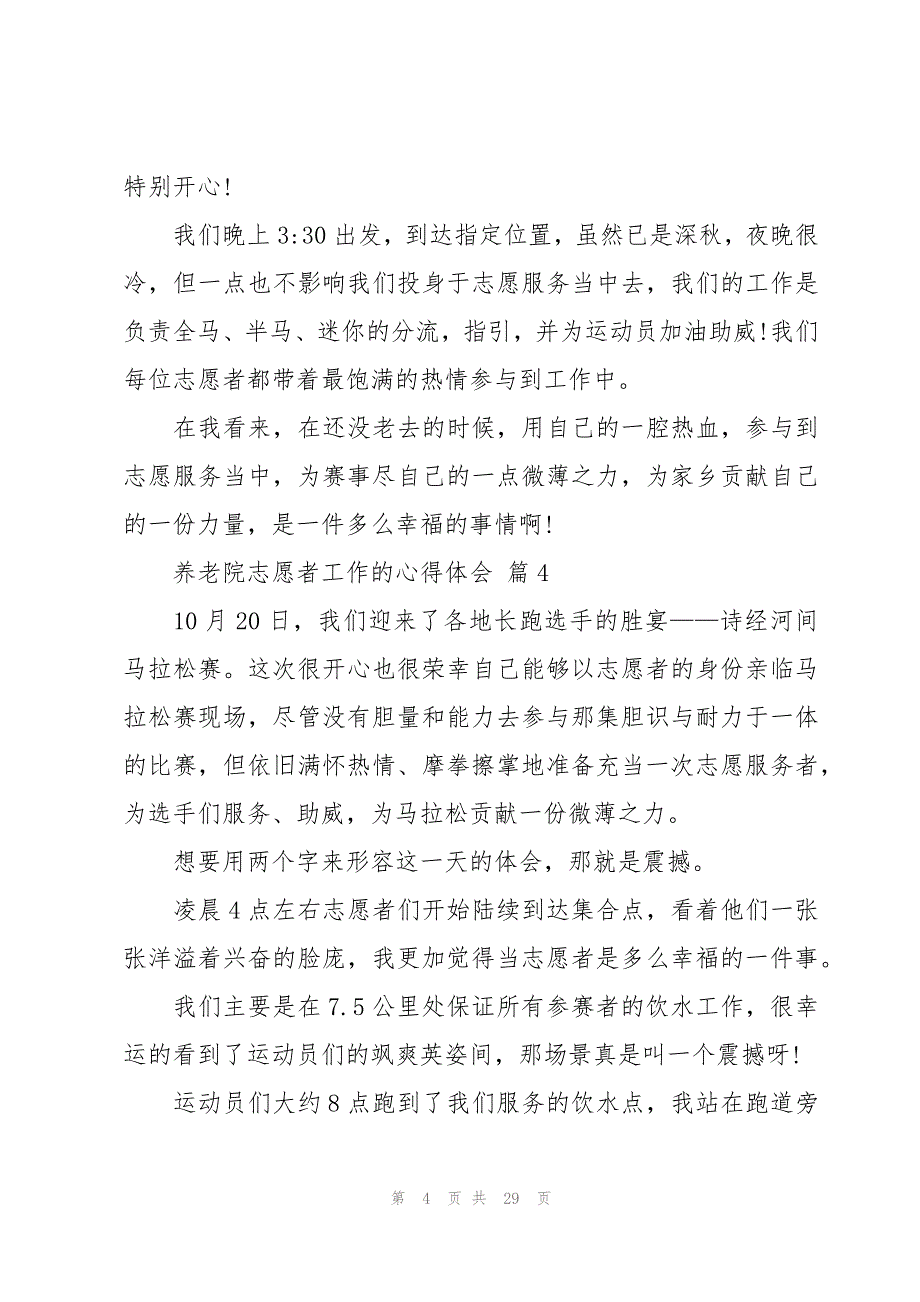 特别开心!
我们晚上3:30出发，到达指定位置，虽然已是深秋，夜晚很
冷，但一点也不影响我们投身于志愿服务当中去，我们的工作是
负责全马、半马、迷你的分流，指引，并为运动员加油助威!我们
每位志愿者都带着最饱满的热情参与到工作中。
在我看来，在还没老去的时候，用自己的一腔热血，参与到
志愿服务当中，为赛事尽自己的一点微薄之力，为家乡贡献自己
的一份力量，是一件多么幸福的事情啊!
养老院志愿者工作的心得体会 篇4
10月20日，我们迎来了各地长跑选手的胜宴——诗经河间
马拉松赛。这次很开心也很荣幸自己能够以志愿者的身份亲临马
拉松赛现场，尽管没有胆量和能力去参与那集胆识与耐力于一体
的比赛，但依旧满怀热情、摩拳擦掌地准备充当一次志愿服务者，
为选手们服务、助威，为马拉松贡献一份微薄之力。
想要用两个字来形容这一天的体会，那就是震撼。
凌晨4点左右志愿者们开始陆续到达集合点，看着他们一张
张洋溢着兴奋的脸庞，我更加觉得当志愿者是多么幸福的一件事。
我们主要是在7.5公里处保证所有参赛者的饮水工作，很幸
运的看到了运动员们的飒爽英姿间，那场景真是叫一个震撼呀!
运动员们大约8点跑到了我们服务的饮水点，我站在跑道旁
第 4 页 共 29 页